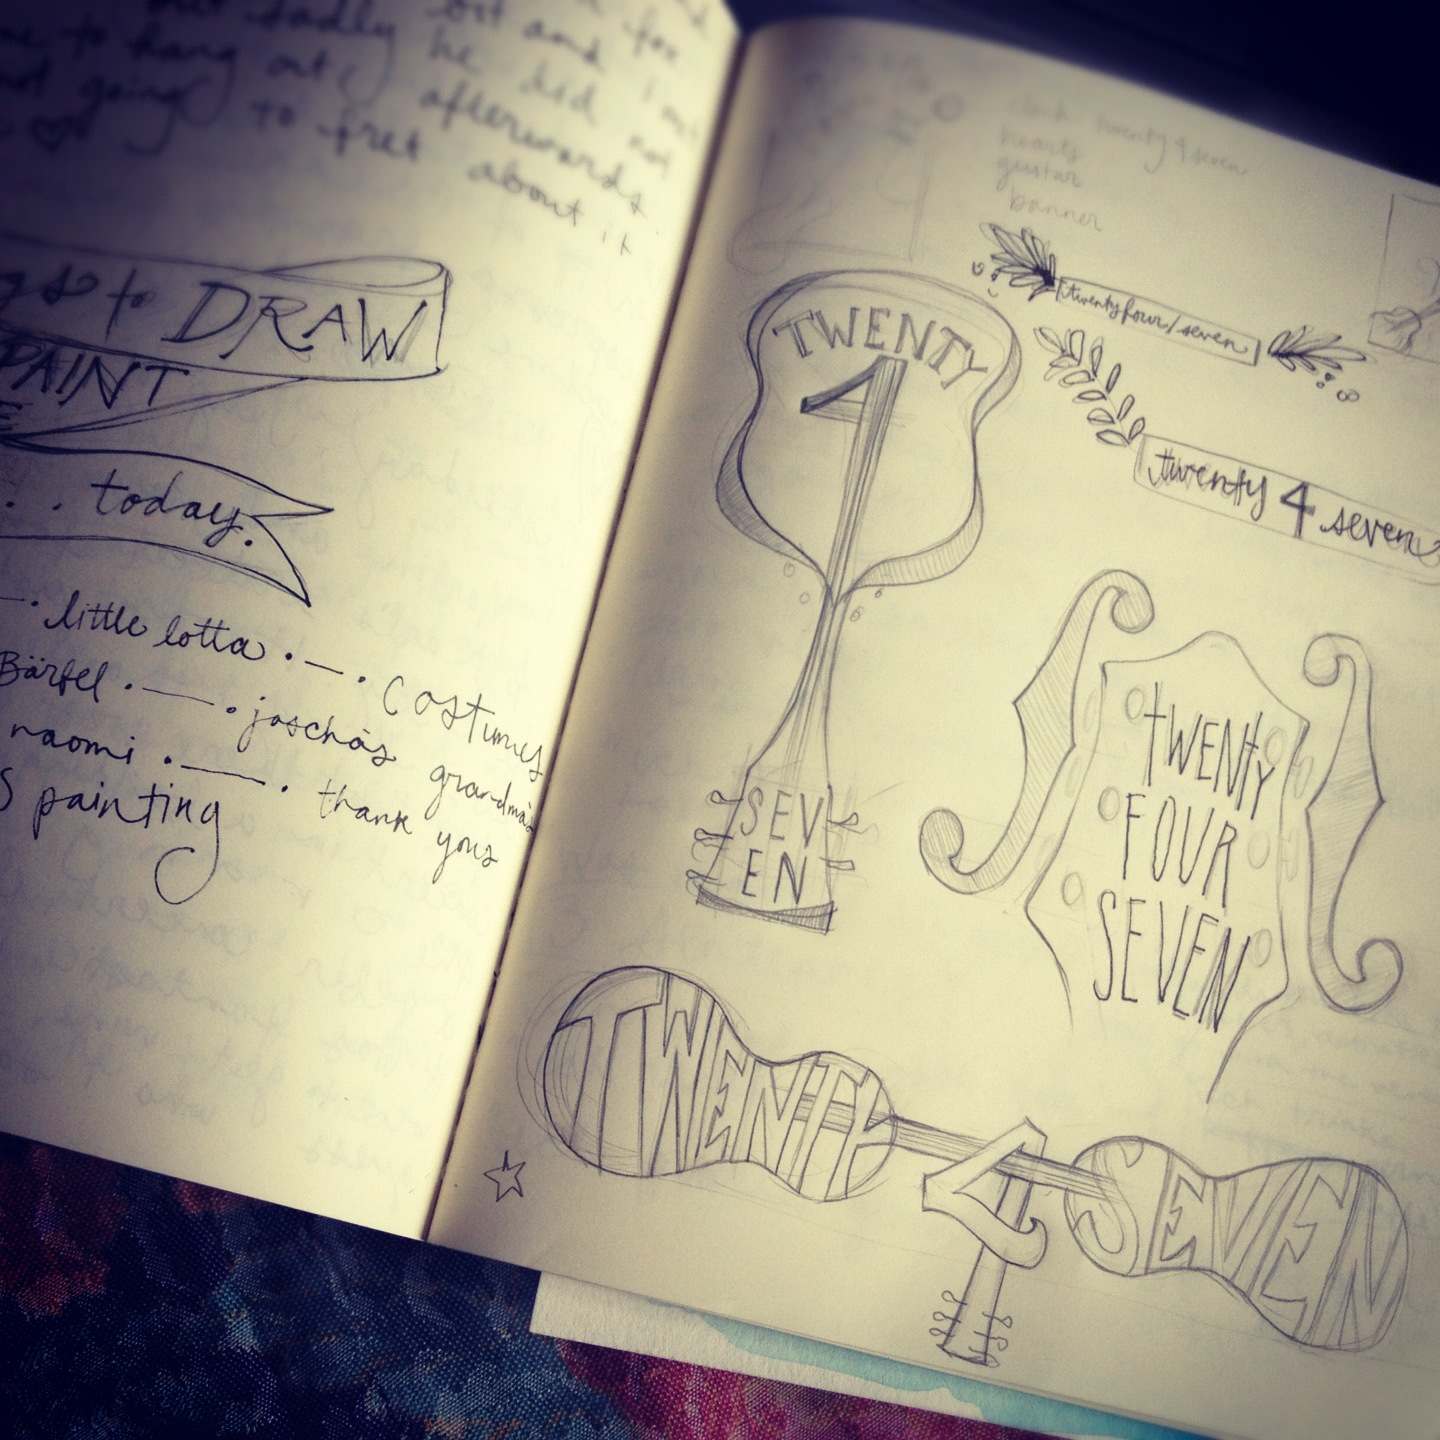 sadly lost and a fox
me to hang out (he did not
not going to fret afterwards
about it
to DRAW
PAINT
. . . today.
little lotta . — . costumes
Bärfel . — . jascha's grandma's
naomi . — . thank yous
painting
twenty 4 seven
hearts
guitar
banner
twentyfour/seven
twenty 4 seven
TWENTY
4
SEV
EN
TWENTY
FOUR
SEVEN
TWENTY 4 SEVEN